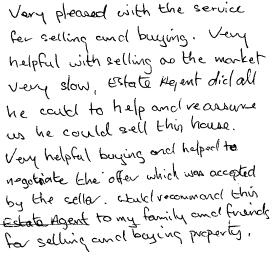 Very pleased with the service
for selling and buying. Very
helpful with selling as the market
very slow, Estate Agent did all
he could to help and reassure
us he could sell this house.
Very helpful buying and helped to
negotiate the offer which was accepted
by the seller. Would recommend this
Estate Agent to my family and friends
for selling and buying property.